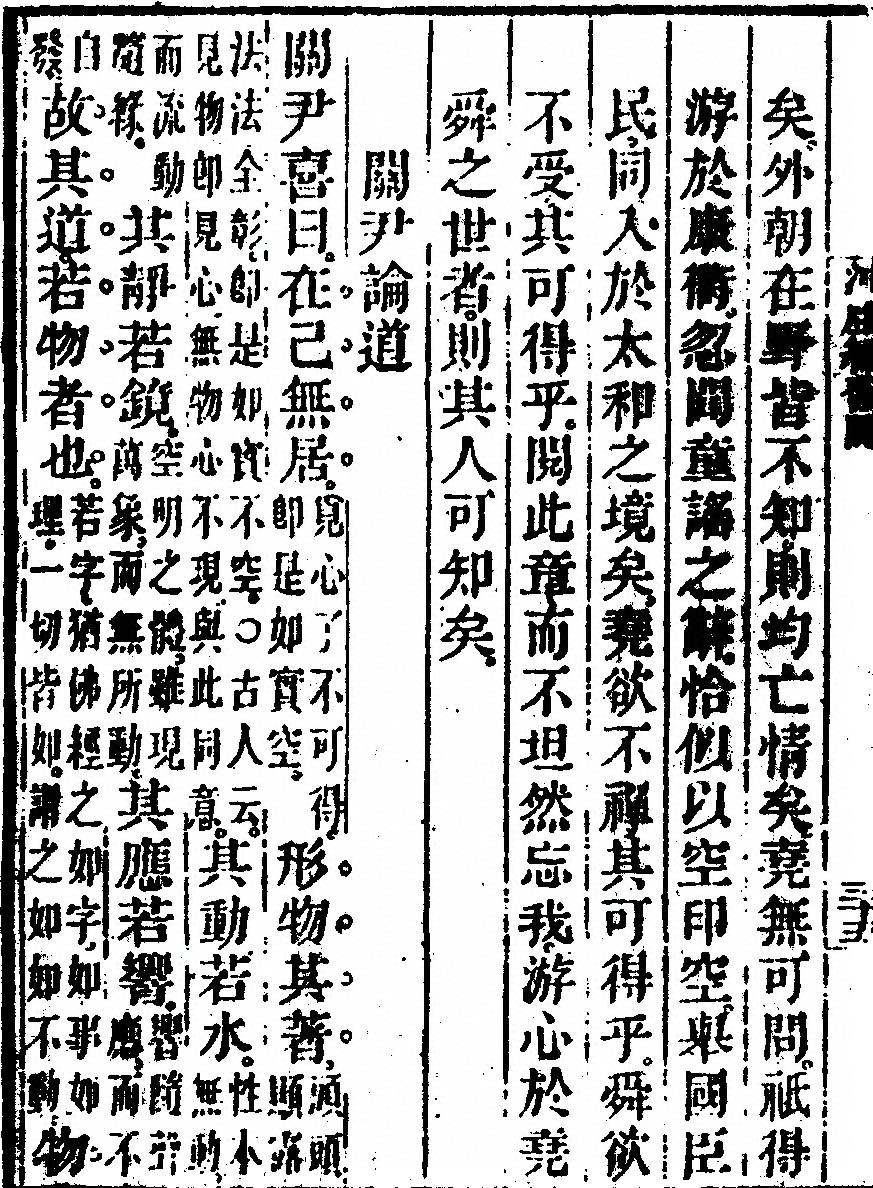 矣。外朝在野皆不知則均亡情矣。堯無可問。祇得
游於康衢。忽聞童謠之辭。恰似以空印空。舉國臣
民。同入於太和之境矣。堯欲不禪。其可得乎。舜欲
不受其可得乎。閱此章而不坦然忘我。游心於堯
舜之世者。則其人可知矣。
關尹論道
關尹喜曰。在己無居。覓心了不可得。即是如實空。形物其著。頭頭顯露
法法全彰。即是如實不空。○古人云。見物即見心。無物心不現。與此同意。其動若水。性本無動。
而流動隨緣。其靜若鏡。空明之體。雖現萬象。而無所動。其應若響。響隨聲應。而不
自發故其道。若物者也。若字。猶佛經之如字。如事如理。一切皆如。謂之如如不動。物